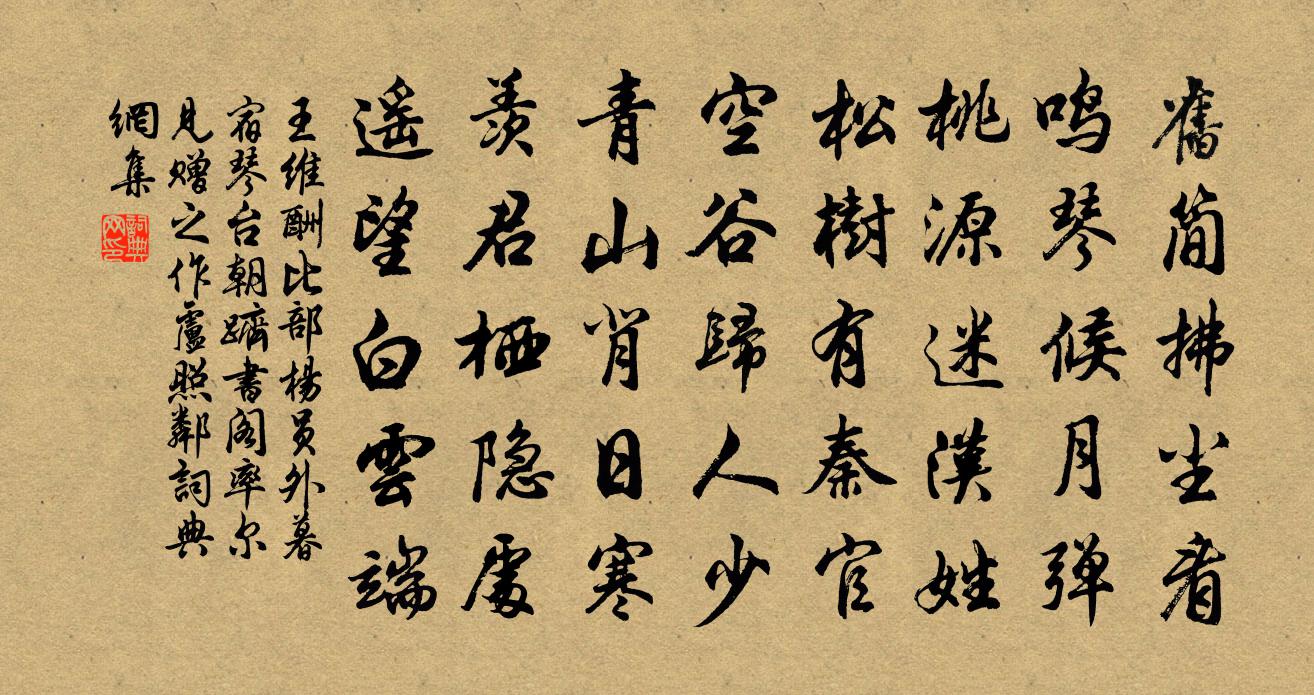 舊简拂尘看
鸣琴候月弹
桃源迷漢姓
松樹有秦官
空谷歸人少
青山背日寒
羡君栖隐處
遥望白雲端
王維酬比部楊員外暮
宿琴台朝躋書阁率尔
見赠之作盧照鄰詞典
網集
詞典网印